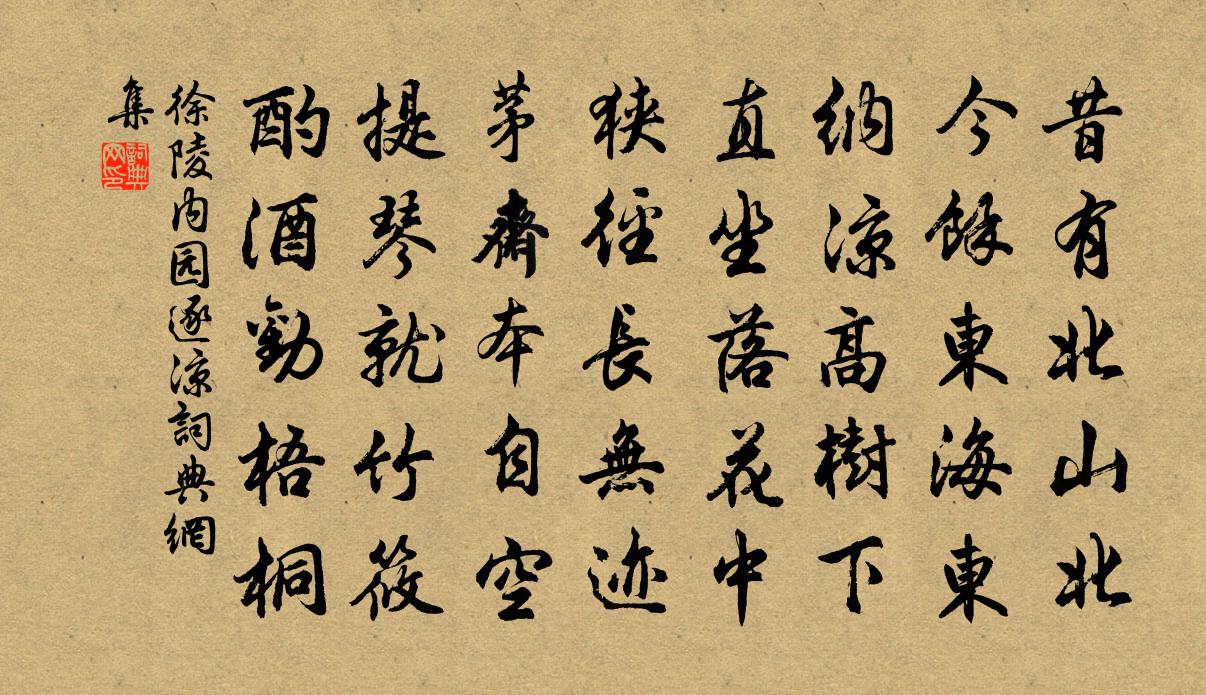 昔有北山北
今餘東海東
納涼高樹下
直坐落花中
狹徑長無迹
茅齋本自空
提琴就竹筱
酌酒勸梧桐
徐陵内园逐涼詞典網
集
詞典网印